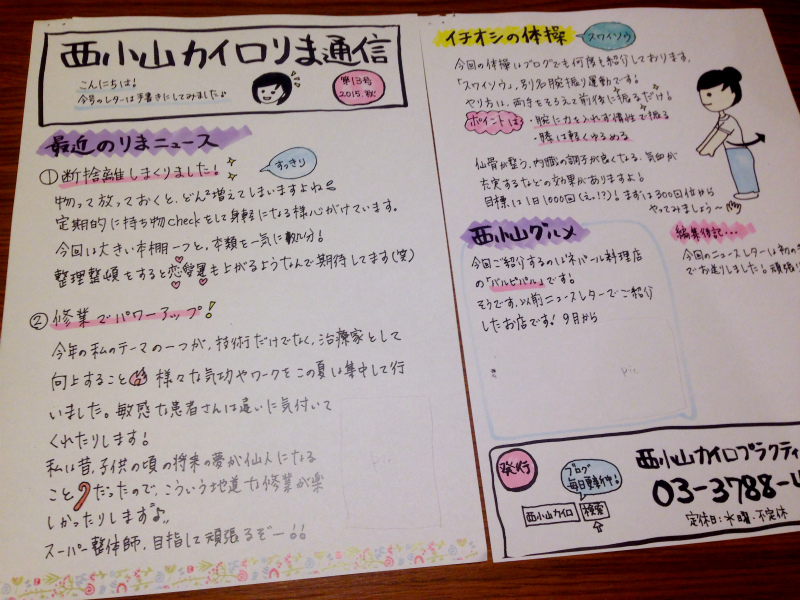 西小山カイロりま通信
こんにちは!
今号のレターは手書きにしてみました♪
第13号
2015.秋
最近のりまニュース
①断捨離しまくりました!
すっきり
物って放っておくと、どんどん増えてしまいますよね
定期的に持ち物checkをして身軽になる様心がけています。
今回は大きい本棚一つと、本類を一気に処分!
整理整頓をすると恋愛運も上がるようなんで期待してます(笑)
②修業でパワーアップ!
今年の私のテーマの一つが、技術だけでなく、治療家として
向上すること 様々な気功やワークをこの夏は集中して行
いました。敏感な患者さんは違いに気付いて
くれたりします!
私は昔、子供の頃の将来の夢が仙人になる
こと だったので、こういう地道な修業が楽
しかったりします♪
スーパー整体師、目指して頑張るぞー!!
pic
イチオシの体操
スワイソウ
今回の体操はブログでも何度も紹介しております、
「スワイソウ」。別名腕振り運動です!
やり方は、両手をそろえて前後に振るだけ!
ポイントは
・腕に力を入れず慣性で振る
・膝は軽くゆるめる
仙骨が整う、内臓の調子が良くなる、気血が
充実するなどの効果がありますよ!
目標は1日1000回(え、!?)!まずは300回位から
やってみましょう〜
西小山グルメ
今回ご紹介するのはネパール料理店
の「バルピパル」です!
そうです、以前ニュースレターでご紹介
したお店です!9月から
pic
編集後記...
今回のニュースレターは初の
でお送りしました!頑張
発行
西小山カイロプラクティ
03-3788-
定休日:水曜・不定休
ブログ
毎日更新中!
西小山カイロ
検索